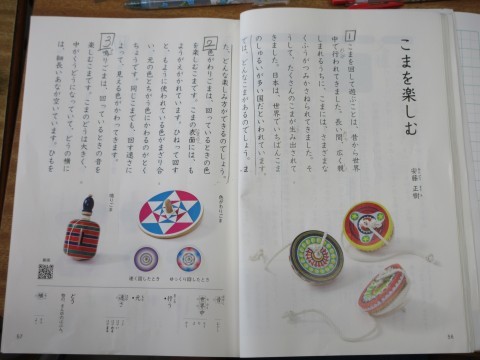 こまを楽しむ
安藤 正樹
1
こまを回して遊ぶことは、昔から世界
中で行われてきました。長い間、広く親
しまれるうちに、こまには、さまざまな
くふうがつみかさねられてきました。そ
うして、たくさんのこまが生み出されて
きました。日本は、世界でいちばんこま
のしゅるいが多い国だといわれています。
では、どんなこまがあるのでしょう。
ま
た、どんな楽しみ方ができるのでしょう。
2
色がわりごまは、回っているときの色
を楽しむこまです。こまの表面には、も
ようがえがかれています。ひねって回す
と、もように使われている色がまざり合
い、元の色とちがう色にかわるのがとく
ちょうです。同じこまでも、回す速さに
よって、見える色がかわってきます。
3
鳴りごまは、回っているときの音を
楽しむこまです。こまのどうは大きく、
中がくうどうになっていて、どうの横に
は、細長いあなが空いています。ひもを
色がわりごま
鳴りごま
速く回したとき
ゆっくり回したとき